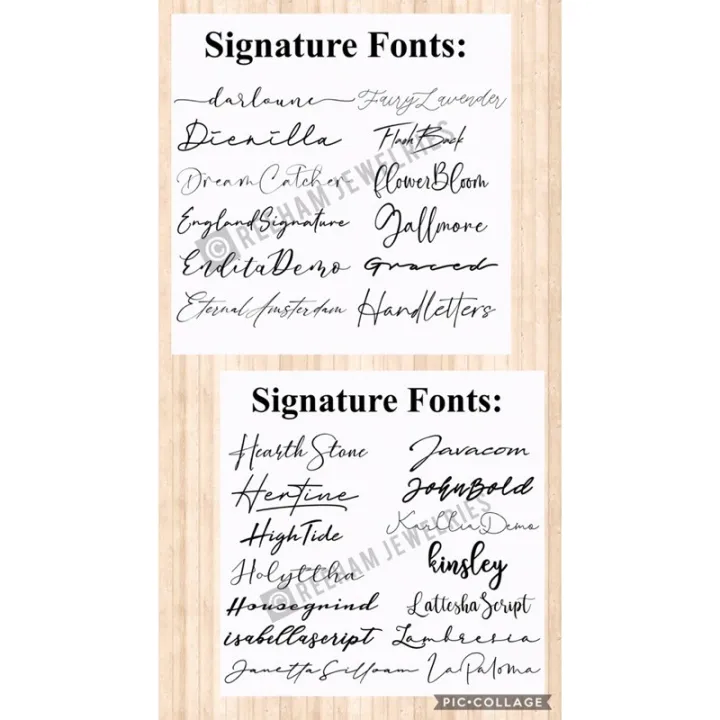 Signature Fonts:
darloune FairyLavender
Dienilla FlashBack
DreamCatcher flowerBloom
EnglandSignature Gallmore
EnditaDemo Graced
EternalAmsterdam Handletters
© REEHAM JEWELRIES
Signature Fonts:
Hearth Stone Javacom
Hertine JohnBold
HighTide KarlliaDemo
Holyttha kinsley
Housegrind LatteshaScript
isabellascript Lambresia
JanettaSilloam LaPaloma
© REEHAM JEWELRIES
PIC•COLLAGE